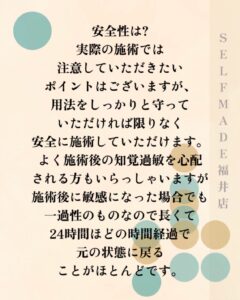 安全性は?
実際の施術では
注意していただきたい
ポイントはございますが、
用法をしっかりと守って
いただければ限りなく
安全に施術していただけます。
よく施術後の知覚過敏を心配
される方もいらっしゃいますが
施術後に敏感になった場合でも
一過性のものなので長くて
24時間ほどの時間経過で
元の状態に戻る
ことがほとんどです。
SELFMADE福井店